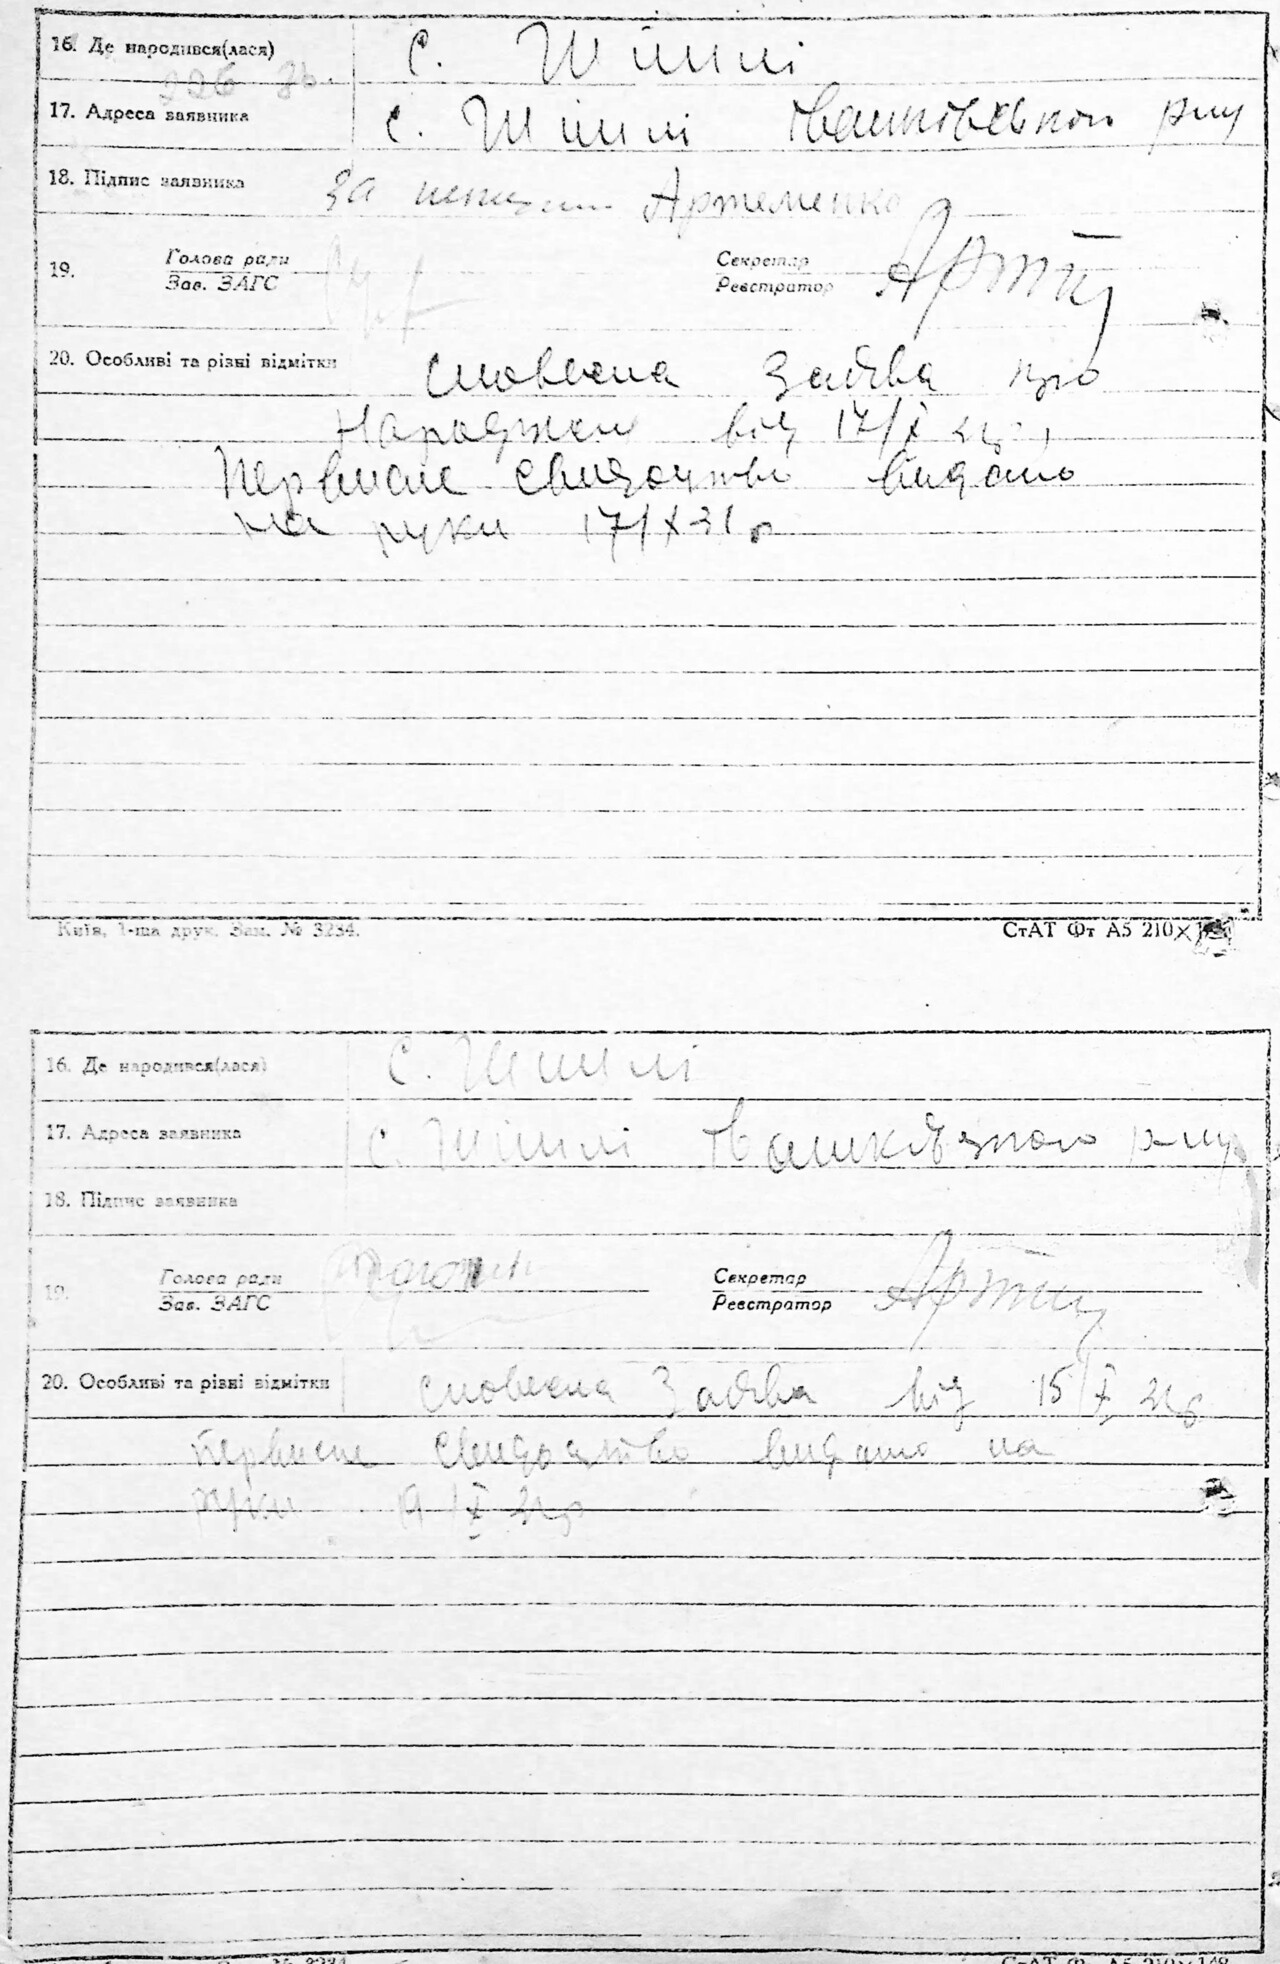 16. Де народився(лася) с. Шишлі
17. Адреса заявника с. Шишлі р-ну
18. Підпис заявника За Артеменко
19. Голова ради Зав. ЗАГС Секретар Реєстратор
20. Особливі та різні відмітки словесна заява про
народжен від 17/X 31р.
Первисне свидоцтво видано
на руки 17/X 31 р
Київ, 1-ша друк. Зам. № 3234.
СтАТ Фт А5 210×
16. Де народився(лася) с. Шишлі
17. Адреса заявника с. Шишлі р-ну
18. Підпис заявника
19. Голова ради Зав. ЗАГС Секретар Реєстратор
20. Особливі та різні відмітки словесна заява від 15/X 31р
Первисне свидоцтво видано на
руки 19/X 31р
№ 3234
СтАТ Фт А5 210×148